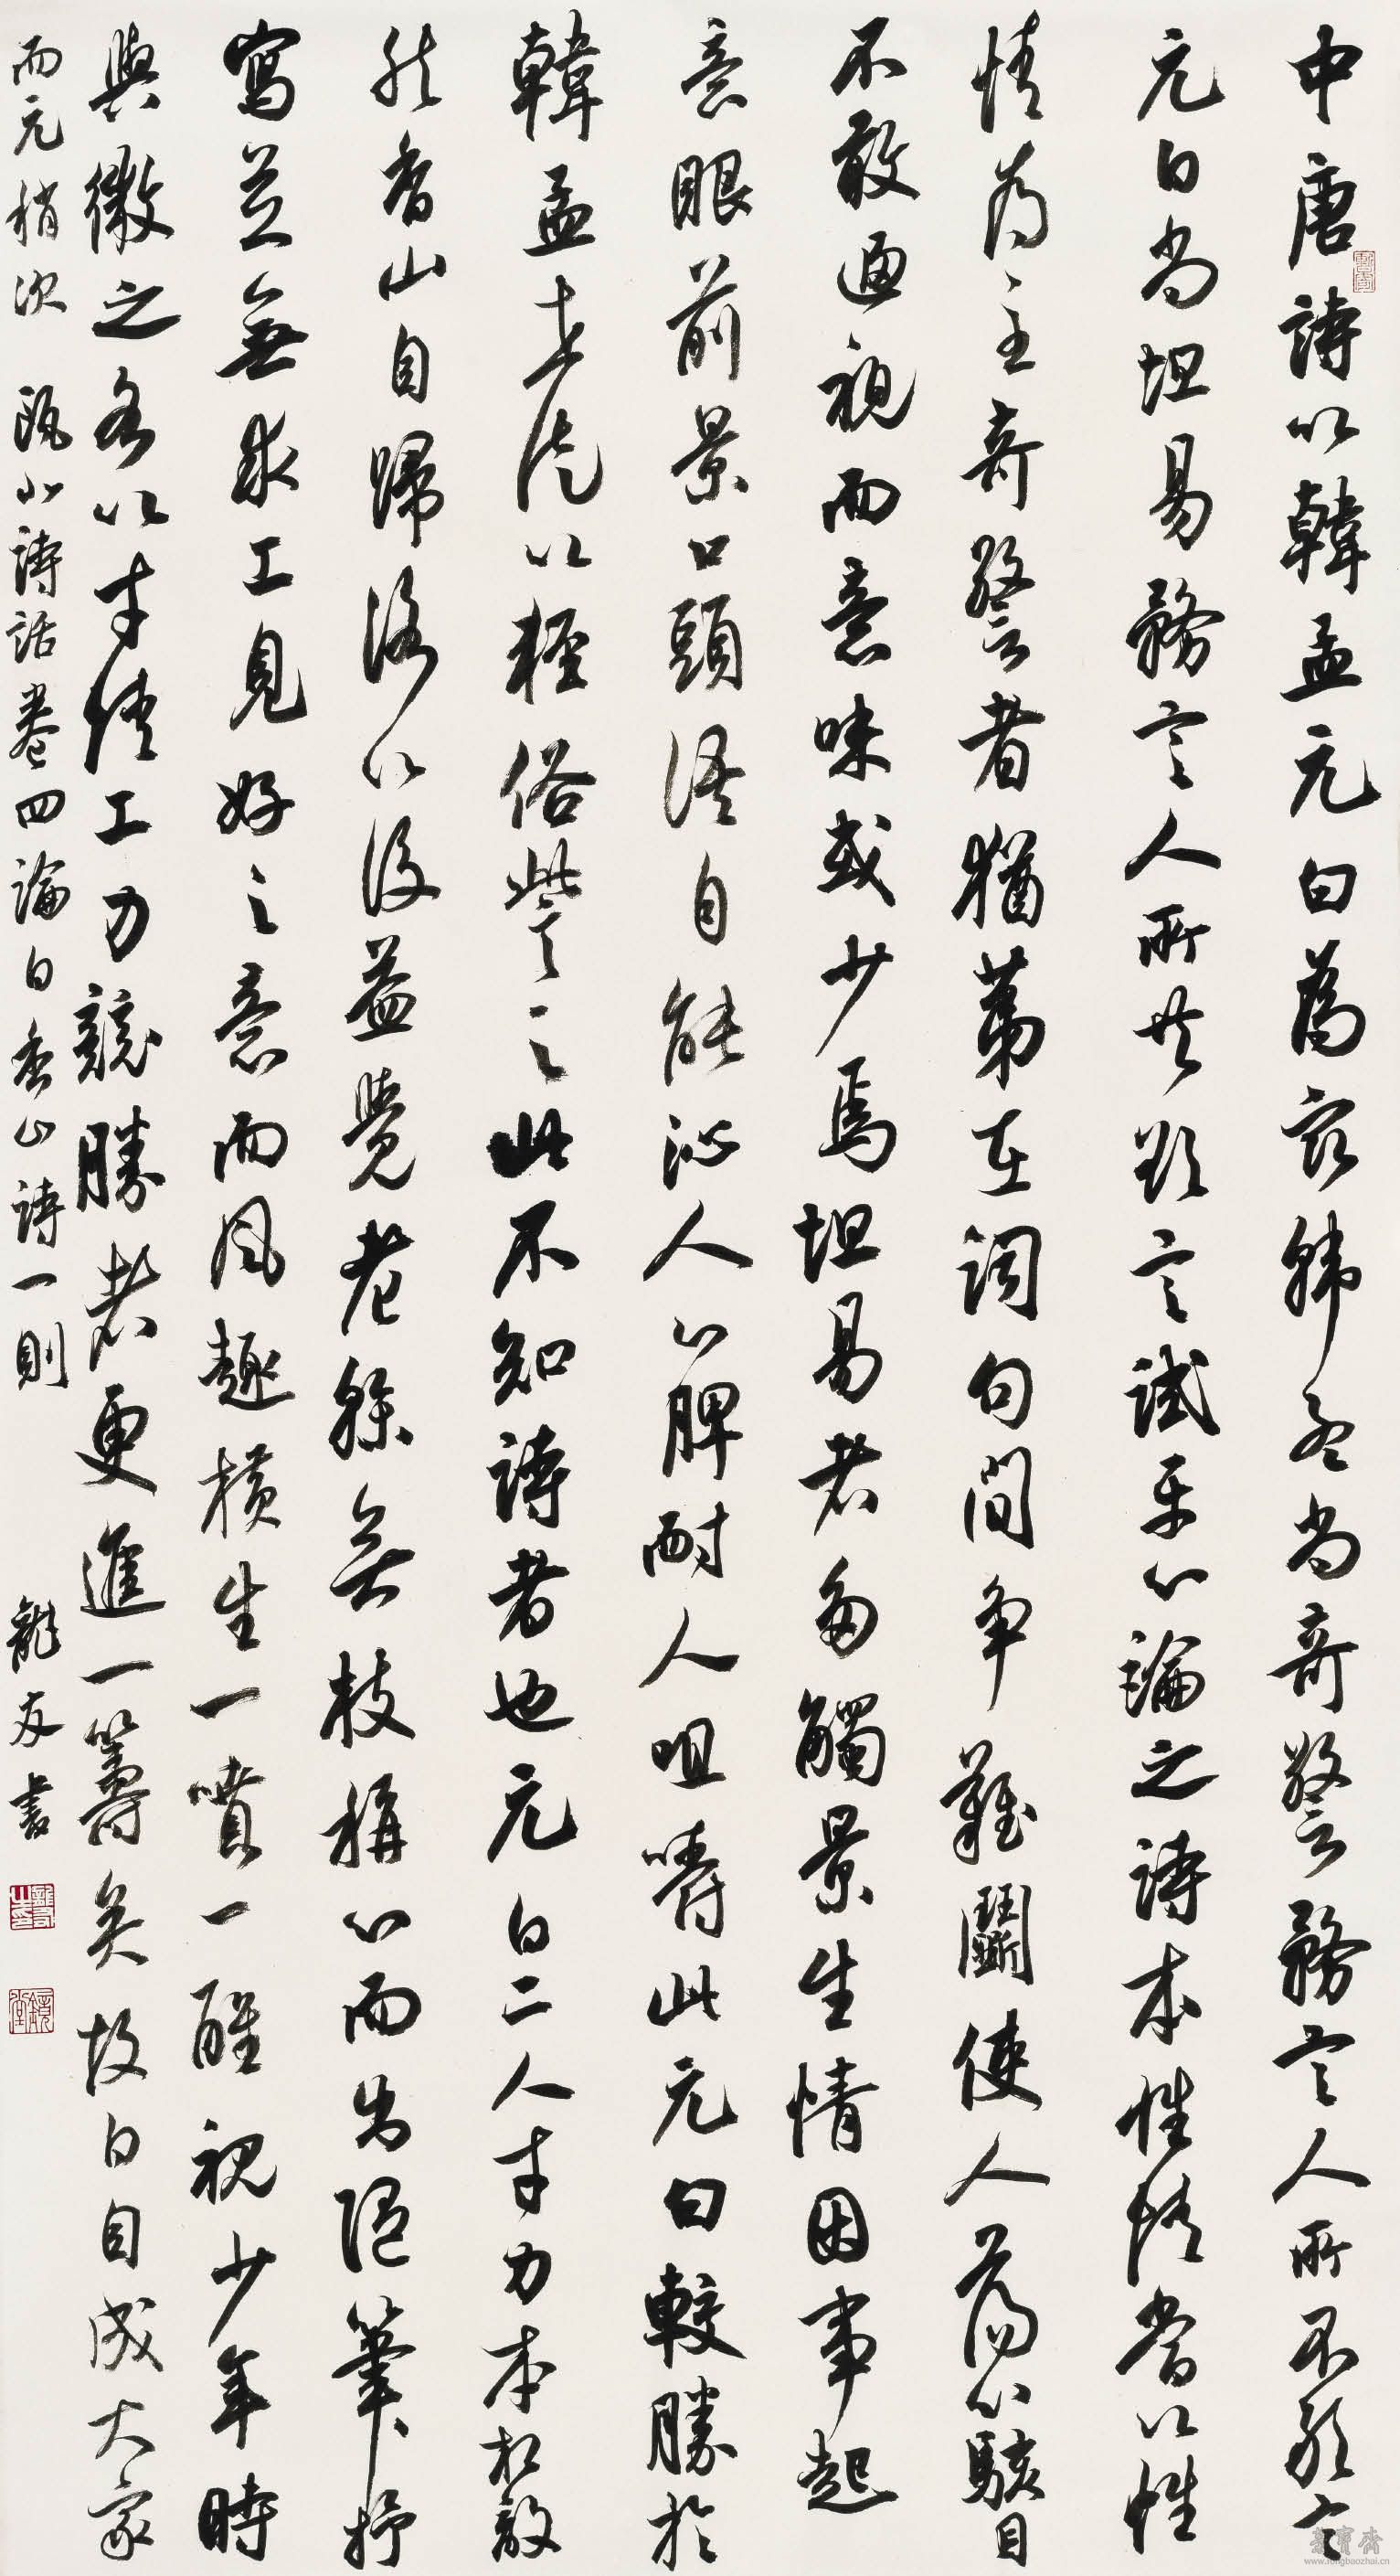 中唐詩以韓孟元白為最韓孟尚奇警務言人所不敢言
元白尚坦易務言人所共欲言試平心論之詩本性情當以性
情為主奇警者猶第在詞句間争難鬬使人蕩心駭目
不敢逼視而意味或少焉坦易者多觸景生情因事起
意眼前景口頭語自能沁人心脾耐人咀嚼此元白較勝於
韓孟世徒以輕俗訾之此不知詩者也元白二人才力本相敵
然香山自歸洛以後益覺老幹無枝稱心而出隨筆抒
寫並無求工見好之意而風趣橫生一噴一醒視少年時
與微之各以才情工力競勝者更進一籌矣故白自成大家
而元稍次 甌北詩話卷四論白香山詩一則 龍友書
榮寶齋
www.rongbaozhai.cn